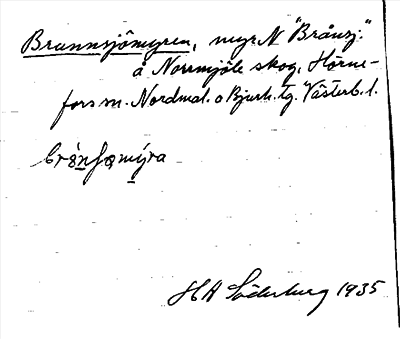 Brannsjömyren, myr N "Brånsj."
å Norrmjöle skog, Hörne-
fors sn. Nordmal. o Bjurh. tg. Västerb. l.
H A Söderberg 1935